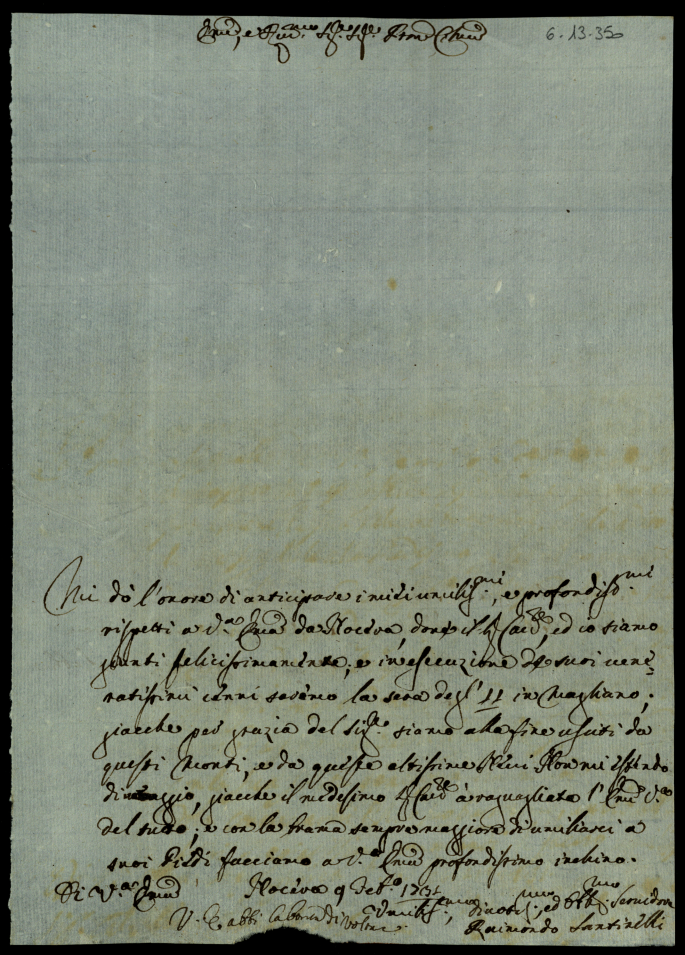 Em̃o, e R.mo Sig.r Sig.r Pron Colmo
6-13-350
Mi dò l'onore di anticipare i miei umilis.mi, e profondiss.mi
rispetti a V.a Em̃a da Nocéra, dove il S.r Cav.re, ed io siamo
giunti felicissimamente, e in esecuzione de suoi vene=
ratissimi cenni sarémo la sera degl' 11 in Magliano;
giacche per grazia del Sig.re siamo alla fine usciti da
questi Monti, e da queste altissime Nevi. Non mi estendo
giacche il medesimo S.r Cav.re à raguagliata l'Em̃a V.a
del tutto; e con la brama sempre maggiore di umiliarci a
suoi Piedi facciamo a V.a Em̃a profondissimo inchino.
Di V.a Em̃a Nocéra 9 Feb.o
Umilis.mo, divotis.mo, ed Obb.mo Servidore
Raimondo Santinelli